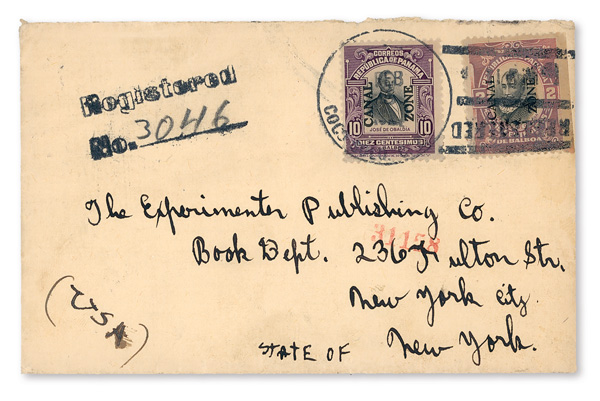 Registered
No. 30446
CORREOS
REPUBLICA DE PANAMA
CANAL ZONE
10 JOSÉ DE OBALDIA 10
DIEZ CENTESIMOS
DE BALBOA
FEB
CANAL ZONE
2
DE BALBOA
The Experimenter Publishing Co.
Book Dept. 236 Fulton Str.
31158
New York City.
(USA)
STATE OF New York.